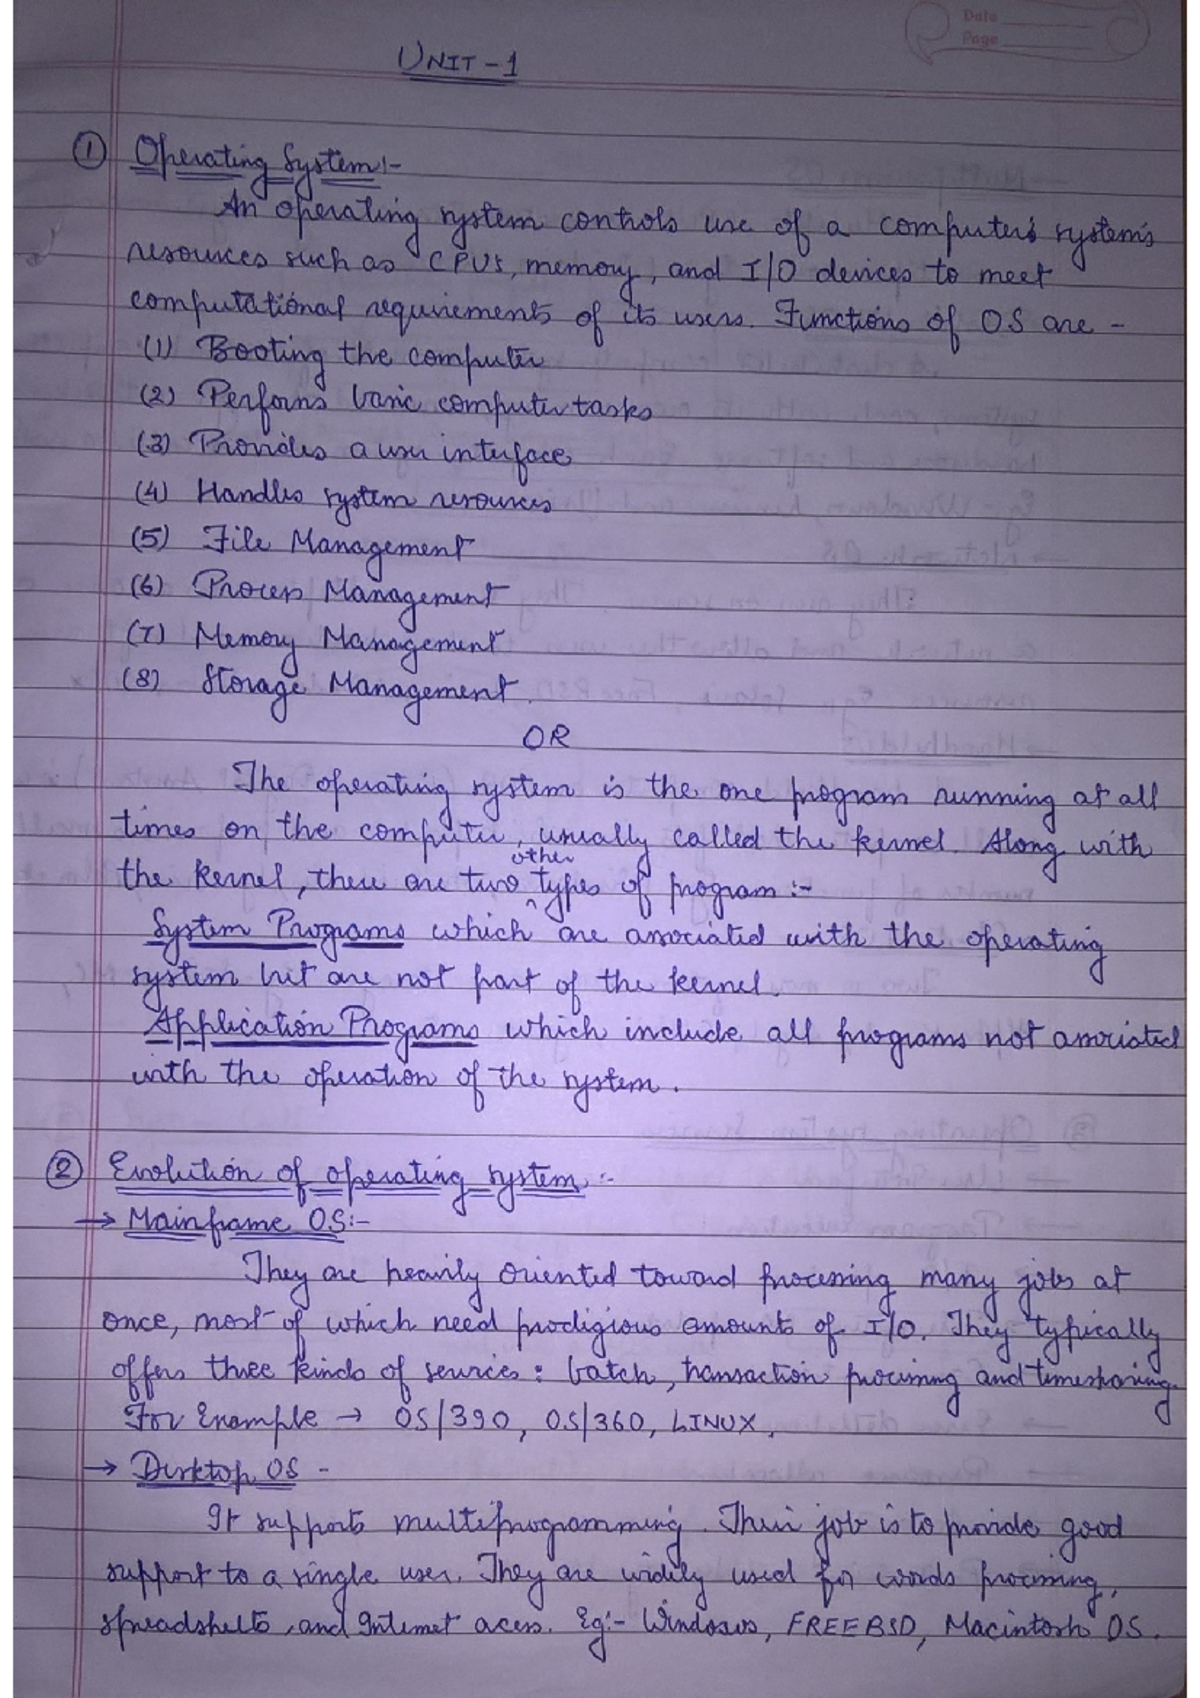 Date
Page
UNIT-1
① Operating System:-
An operating system controls use of a computer's system's
resources such as CPUs, memory, and I/O devices to meet
computational requirements of its users. Functions of OS are -
(1) Booting the computer
(2) Performs basic computer tasks
(3) Provides a user interface
(4) Handles system resources
(5) File Management
(6) Process Management
(7) Memory Management
(8) Storage Management.
OR
The operating system is the one program running at all
times on the computer, usually called the kernel. Along with
the kernel, there are two other types of program :-
System Programs which are associated with the operating
system but are not part of the kernel.
Application Programs which include all programs not associated
with the operation of the system.
② Evolution of operating system :-
→ Mainframe OS:-
They are heavily oriented toward processing many jobs at
once, most of which need prodigious amounts of I/O. They typically
offers three kinds of services: batch, transaction processing and timesharing.
For Example → OS/390, OS/360, LINUX.
→ Desktop OS -
It supports multiprogramming. Their job is to provide good
support to a single user. They are widely used for words processing,
spreadsheets, and Internet acess. Eg:- Windows, FREEBSD, Macintosh OS.